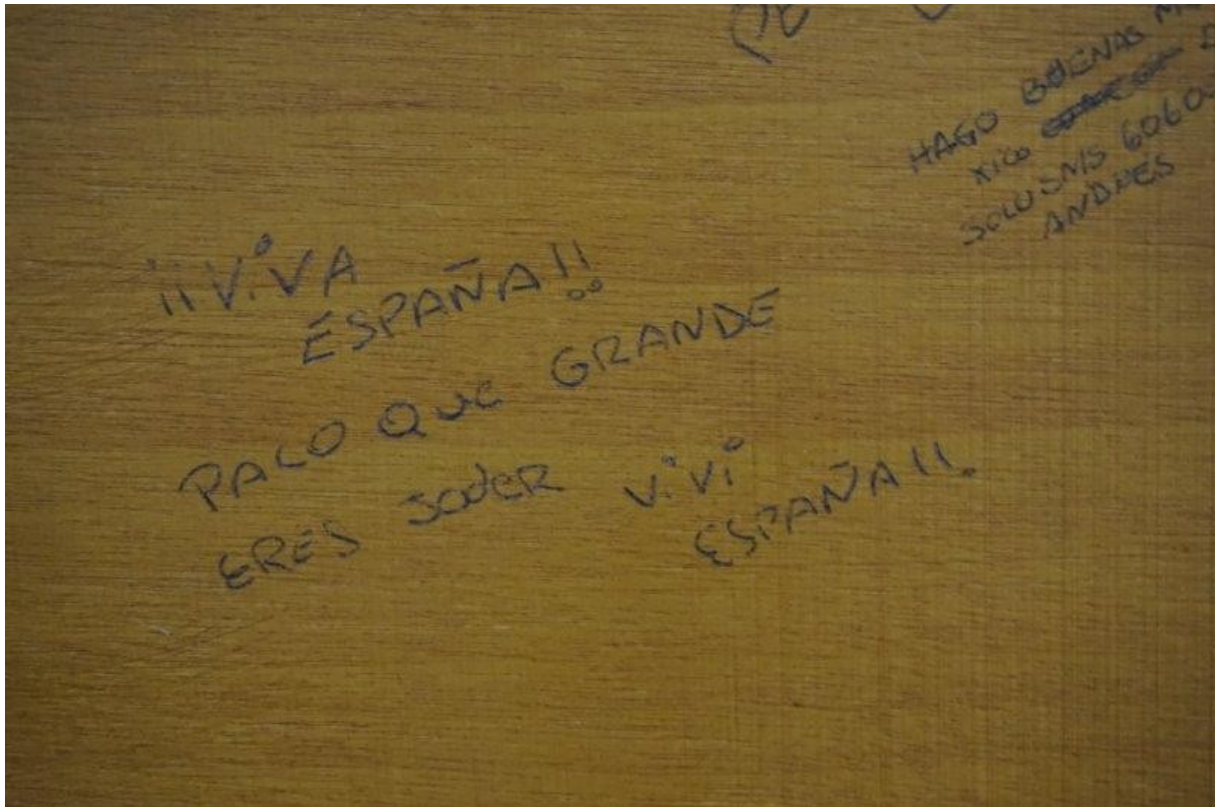 HAGO BUENAS
XICO
SOLO SMS 6060
ANDRES
¡¡ViVA
ESPAÑA!!
PACO QUE GRANDE
ERES JODER ViVi
ESPAÑA!!